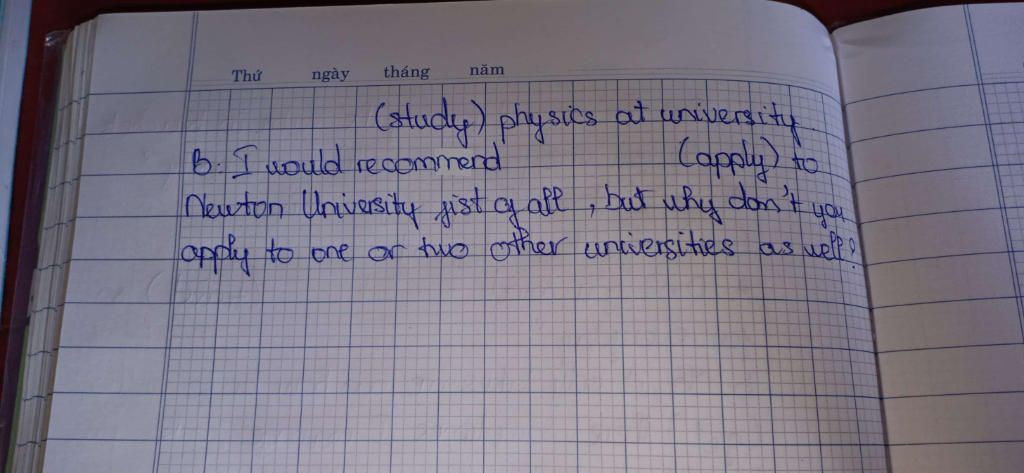 Thứ ngày tháng năm
(study) physics at university.
B: I would recommend (apply) to
Newton University fist of all, but why don't you
apply to one or two other universities as well?